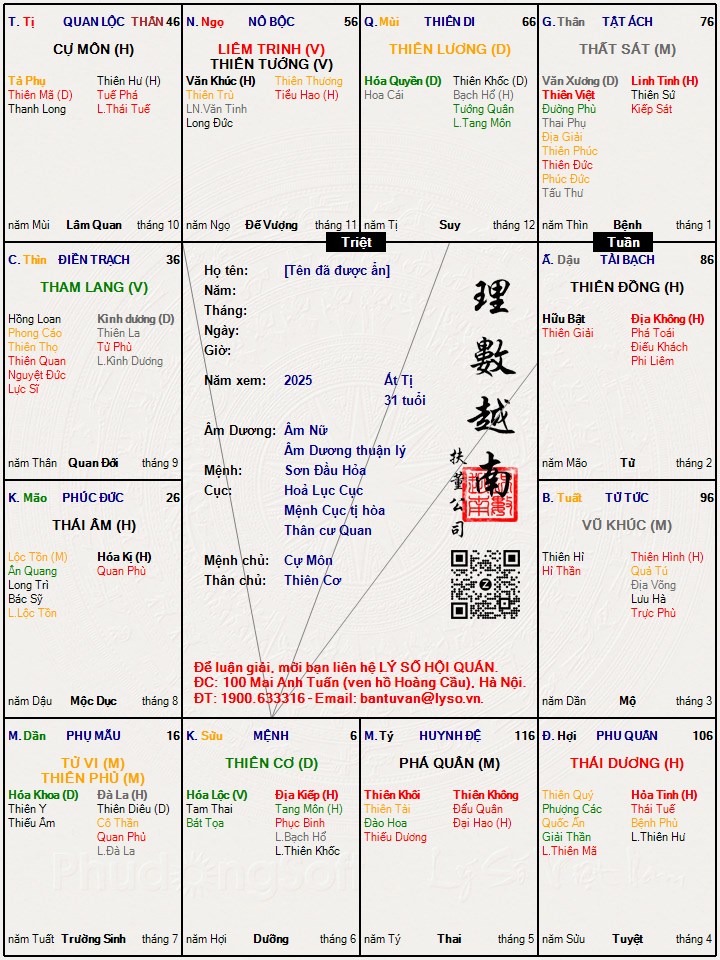 T. Tị QUAN LỘC THÂN 46
CỰ MÔN (H)
Tả Phụ Thiên Hư (H)
Thiên Mã (D) Tuế Phá
Thanh Long L.Thái Tuế
năm Mùi Lâm Quan tháng 10
N. Ngọ NÔ BỘC 56
LIÊM TRINH (V)
THIÊN TƯỚNG (V)
Văn Khúc (H) Thiên Thương
Thiên Trù Tiểu Hao (H)
LN.Văn Tinh
Long Đức
năm Ngọ Đế Vượng tháng 11
Q. Mùi THIÊN DI 66
THIÊN LƯƠNG (D)
Hóa Quyền (D) Thiên Khốc (D)
Hoa Cái Bạch Hổ (H)
Tướng Quân
L.Tang Môn
năm Tị Suy tháng 12
G. Thân TẬT ÁCH 76
THẤT SÁT (M)
Văn Xương (D) Linh Tinh (H)
Thiên Việt Thiên Sứ
Đường Phù Kiếp Sát
Thai Phụ
Địa Giải
Thiên Phúc
Thiên Đức
Phúc Đức
Tấu Thư
năm Thìn Bệnh tháng 1
Triệt
Tuần
C. Thìn ĐIỀN TRẠCH 36
THAM LANG (V)
Hồng Loan Kình dương (D)
Phong Cáo Thiên La
Thiên Thọ Tử Phù
Thiên Quan L.Kình Dương
Nguyệt Đức
Lực Sĩ
năm Thân Quan Đới tháng 9
Họ tên: [Tên đã được ẩn]
Năm:
Tháng:
Ngày:
Giờ:
Năm xem: 2025 Ất Tị
31 tuổi
Âm Dương: Âm Nữ
Âm Dương thuận lý
Mệnh: Sơn Đầu Hỏa
Cục: Hoả Lục Cục
Mệnh Cục tị hòa
Thân cư Quan
Mệnh chủ: Cự Môn
Thân chủ: Thiên Cơ
理數越南
扶董公司
Z
Để luận giải, mời bạn liên hệ LÝ SỐ HỘI QUÁN.
ĐC: 100 Mai Anh Tuấn (ven hồ Hoàng Cầu), Hà Nội.
ĐT: 1900.633316 - Email: bantuvan@lyso.vn.
Ấ. Dậu TÀI BẠCH 86
THIÊN ĐỒNG (H)
Hữu Bật Địa Không (H)
Thiên Giải Phá Toái
Điếu Khách
Phi Liêm
năm Mão Tử tháng 2
K. Mão PHÚC ĐỨC 26
THÁI ÂM (H)
Lộc Tồn (M) Hóa Kị (H)
Ân Quang Quan Phù
Long Trì
Bác Sỹ
L.Lộc Tồn
năm Dậu Mộc Dục tháng 8
B. Tuất TỬ TỨC 96
VŨ KHÚC (M)
Thiên Hỉ Thiên Hình (H)
Hỉ Thần Quả Tú
Địa Võng
Lưu Hà
Trực Phù
năm Dần Mộ tháng 3
M. Dần PHỤ MẪU 16
TỬ VI (M)
THIÊN PHỦ (M)
Hóa Khoa (D) Đà La (H)
Thiên Y Thiên Diêu (D)
Thiếu Âm Cô Thần
Quan Phủ
L.Đà La
năm Tuất Trường Sinh tháng 7
K. Sửu MỆNH 6
THIÊN CƠ (D)
Hóa Lộc (V) Địa Kiếp (H)
Tam Thai Tang Môn (H)
Bát Tọa Phục Binh
L.Bạch Hổ
L.Thiên Khốc
năm Hợi Dưỡng tháng 6
M. Tý HUYNH ĐỆ 116
PHÁ QUÂN (M)
Thiên Khôi Thiên Không
Thiên Tài Đẩu Quân
Đào Hoa Đại Hao (H)
Thiếu Dương
năm Tý Thai tháng 5
Đ. Hợi PHU QUÂN 106
THÁI DƯƠNG (H)
Thiên Quý Hỏa Tinh (H)
Phượng Các Thái Tuế
Quốc Ấn Bệnh Phù
Giải Thần L.Thiên Hư
L.Thiên Mã
năm Sửu Tuyệt tháng 4